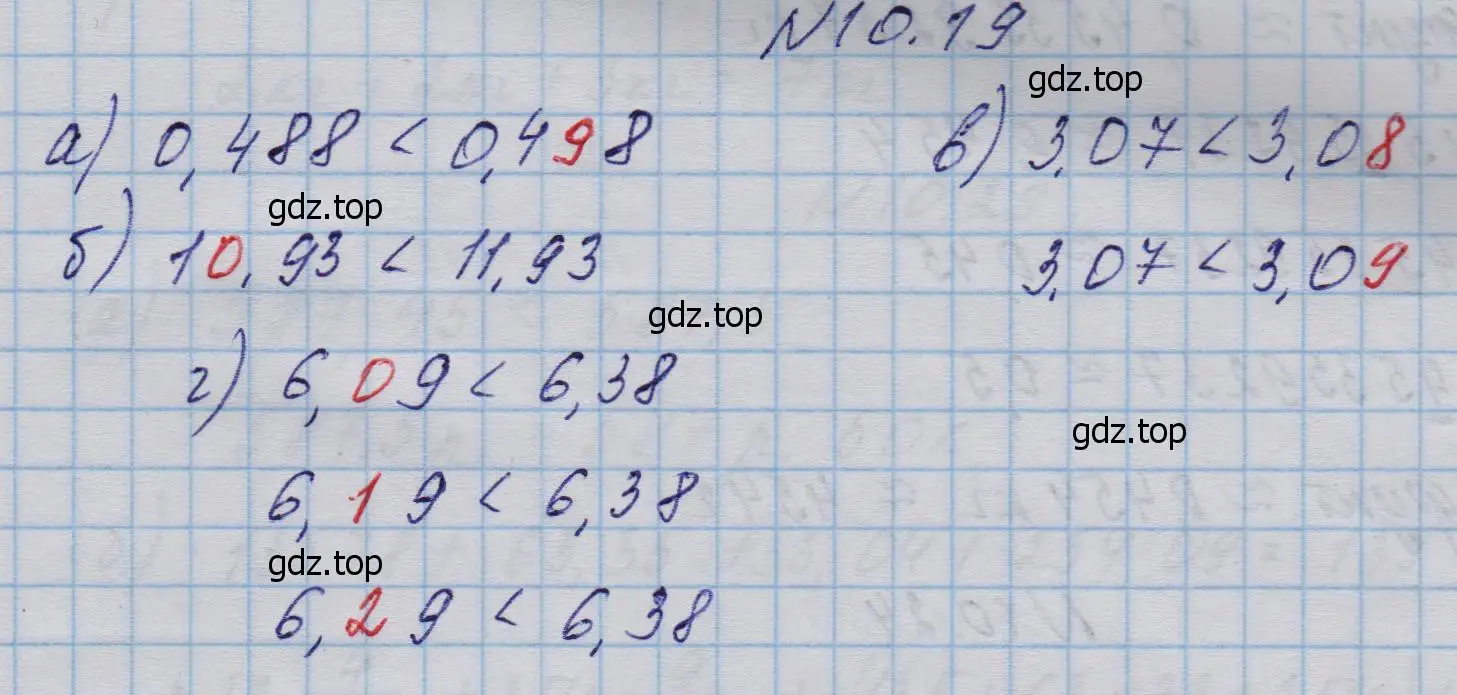 N10.19
gdz.top
а) 0,488 < 0,498
в) 3,07 < 3,08
gdz.top
б) 10,93 < 11,93
3,07 < 3,09
gdz.top
г) 6,09 < 6,38
gdz.top
6,19 < 6,38
gdz.top
6,29 < 6,38